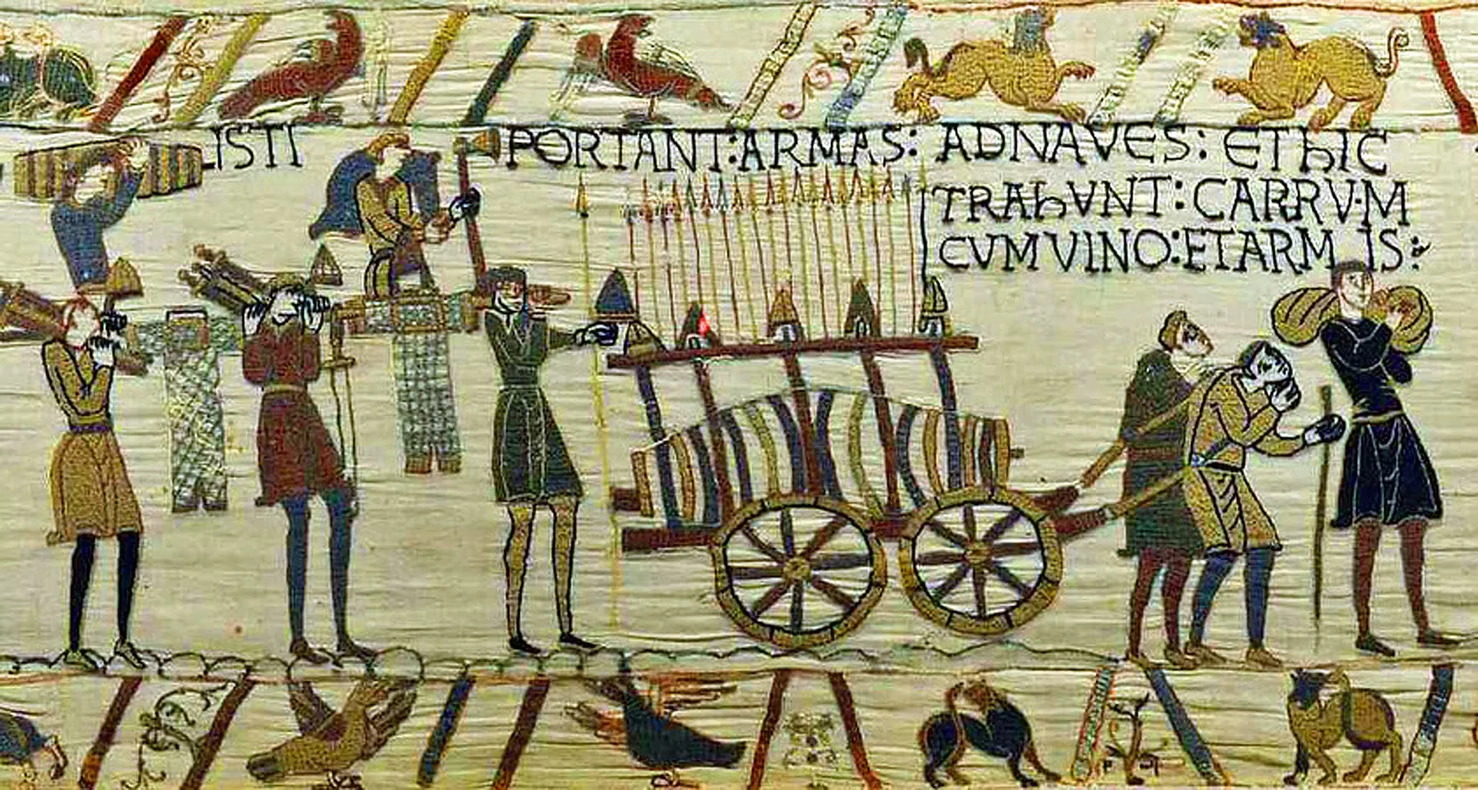 ISTI PORTANT:ARMAS: ADNAVES: EThIC
TRAhVNT:CARRVM
CVMVINO:ETARMIS: